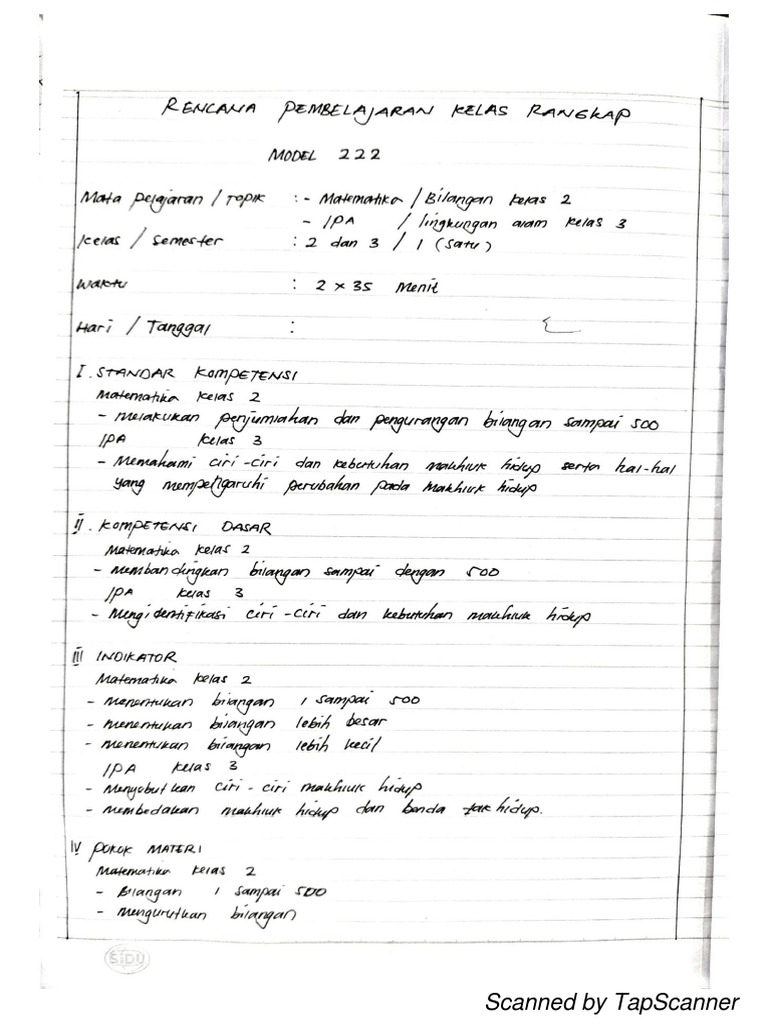 RENCANA PEMBELAJARAN KELAS RANGKAP
MODEL 222
Mata pelajaran / Topik : - Matematika / Bilangan kelas 2
- IPA / lingkungan alam kelas 3
Kelas / Semester : 2 dan 3 / 1 (satu)
Waktu : 2 x 35 Menit
Hari / Tanggal :
I. STANDAR KOMPETENSI
Matematika kelas 2
- Melakukan penjumlahan dan pengurangan bilangan sampai 500
IPA kelas 3
- Memahami ciri-ciri dan kebutuhan makhluk hidup serta hal-hal
yang mempengaruhi perubahan pada makhluk hidup
II. KOMPETENSI DASAR
Matematika kelas 2
- Membandingkan bilangan sampai dengan 500
IPA kelas 3
- Mengidentifikasi ciri-ciri dan kebutuhan makhluk hidup
III INDIKATOR
Matematika kelas 2
- Menentukan bilangan 1 sampai 500
- Menentukan bilangan lebih besar
- Menentukan bilangan lebih kecil
IPA kelas 3
- Menyebutkan ciri-ciri makhluk hidup
- Membedakan makhluk hidup dan benda tak hidup.
IV POKOK MATERI
Matematika kelas 2
- Bilangan 1 sampai 500
- Mengurutkan bilangan
SiDU
Scanned by TapScanner